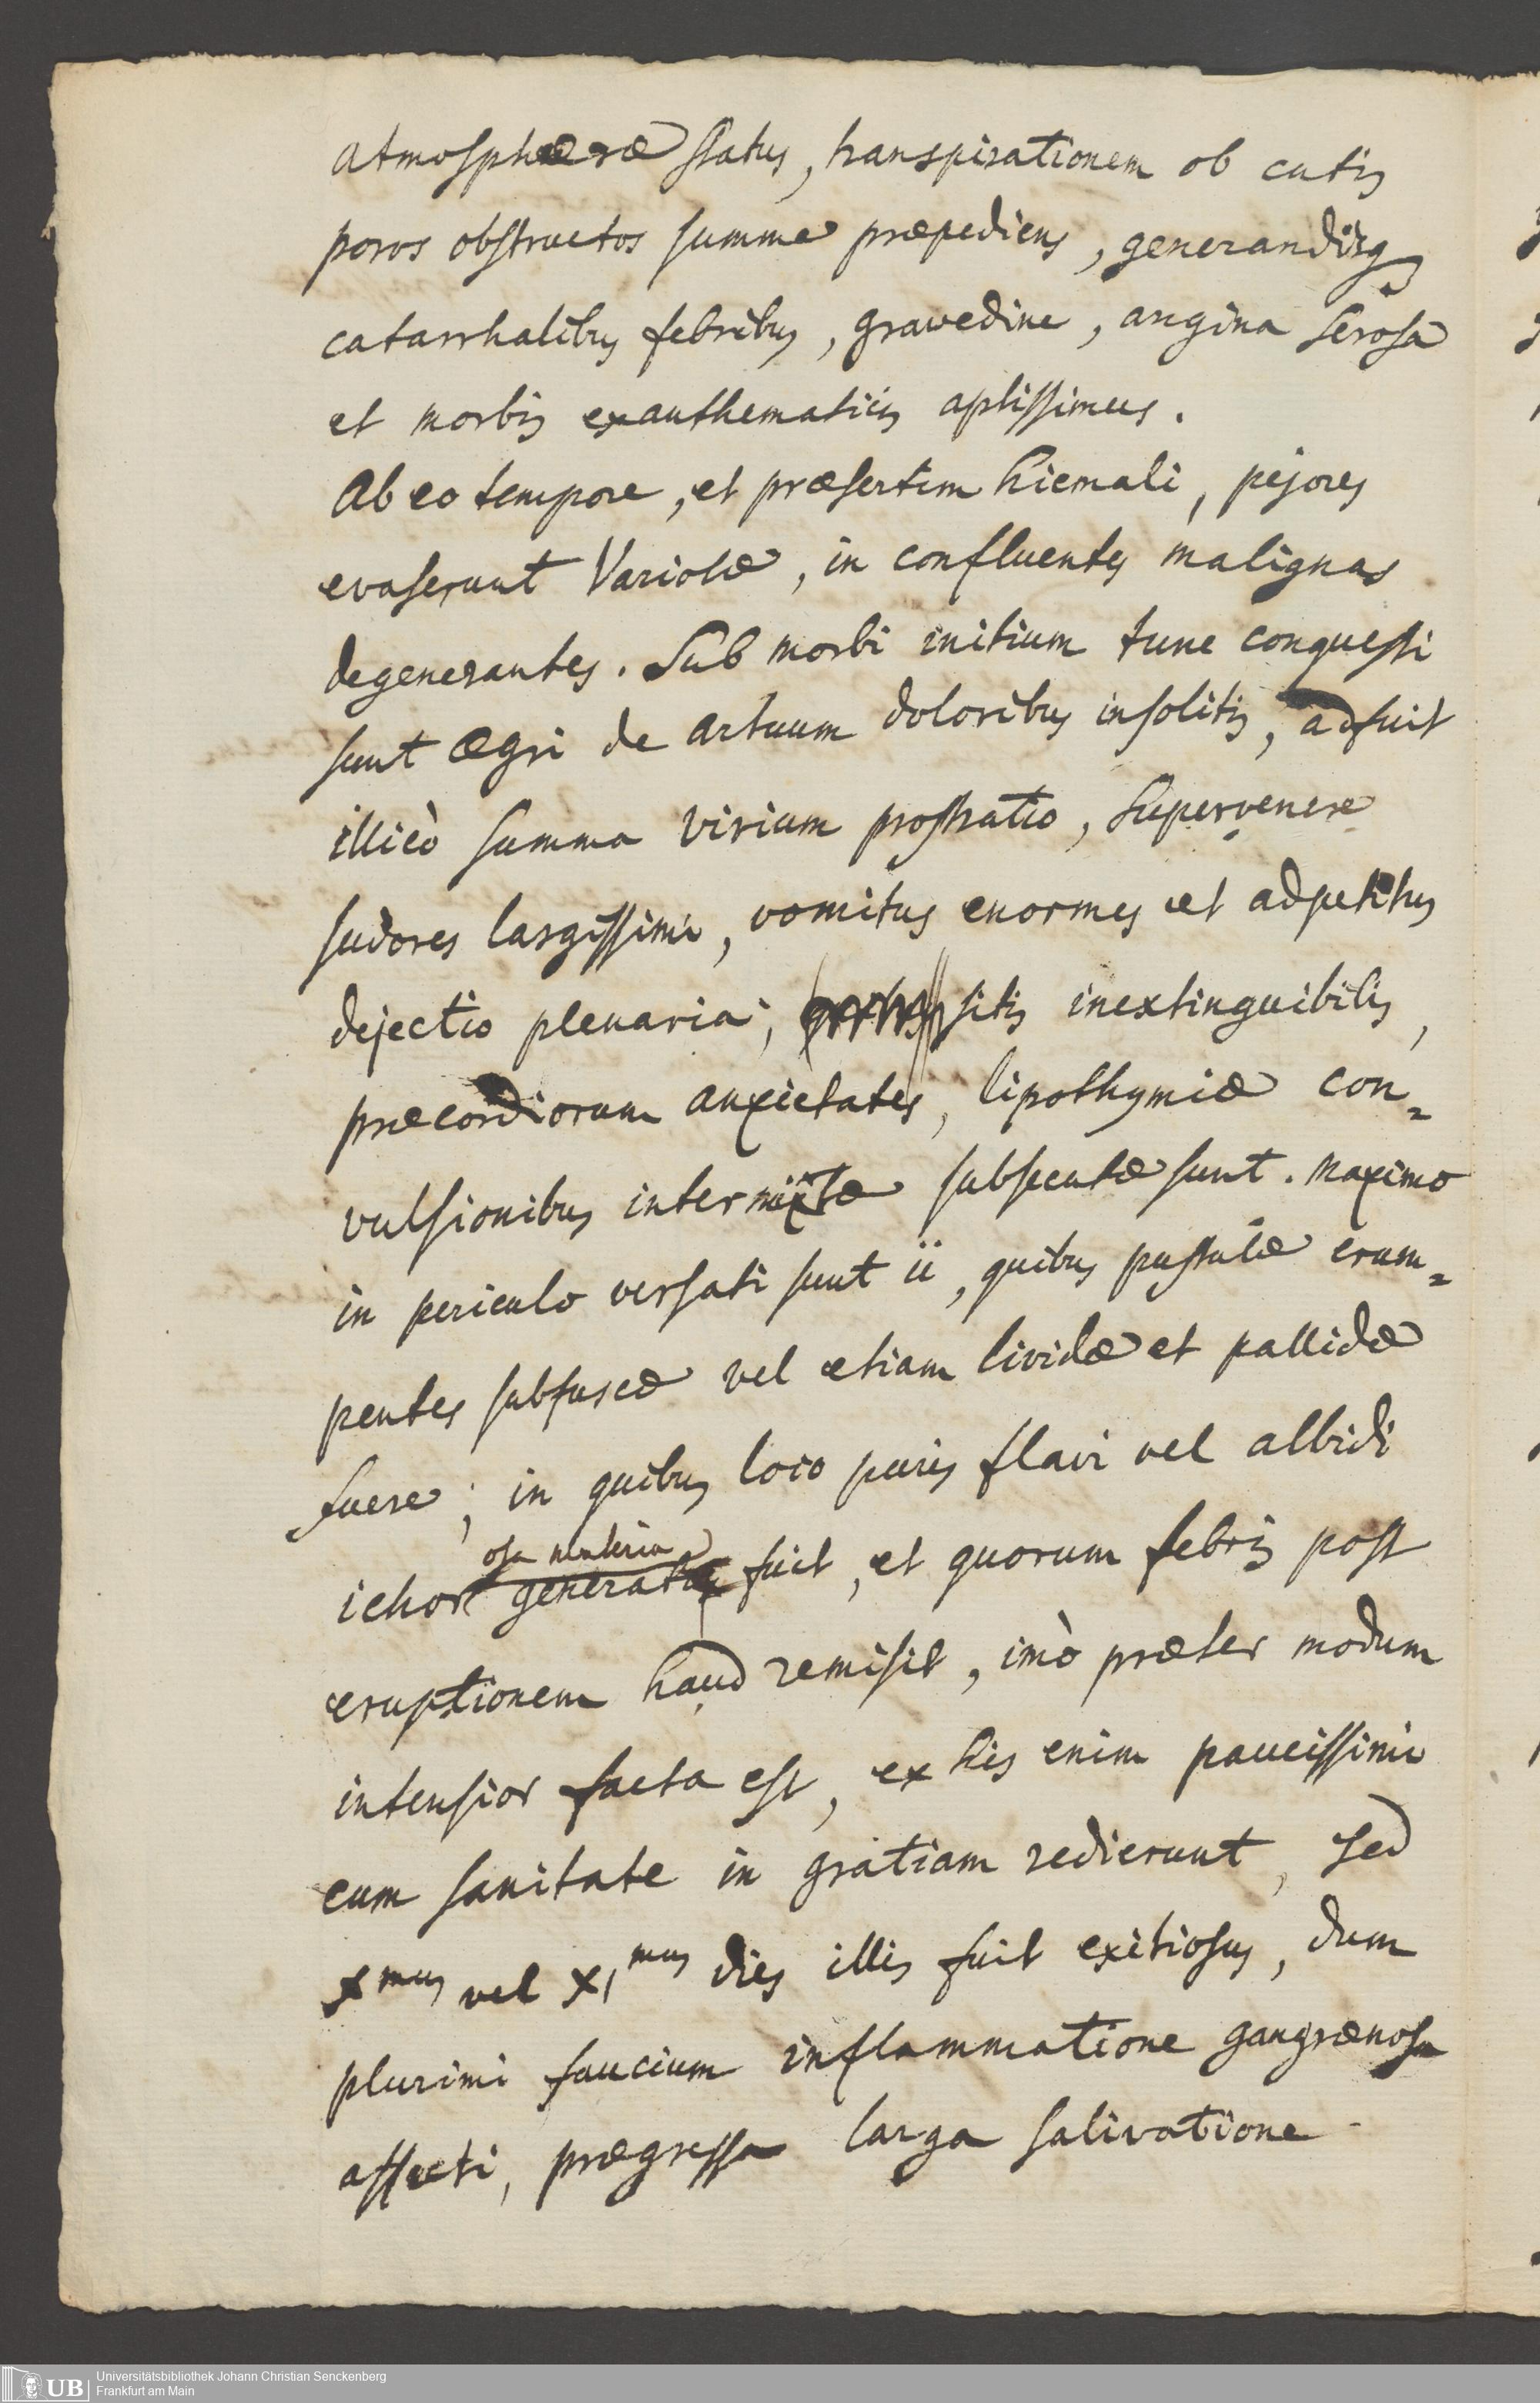 atmosphæræ status, transpirationem ob cutis
poros obstructos summe præpediens, generandisq
catarrhalibus febribus, gravedine, angina serosa
et morbis exanthematicis aptissimus.
Ab eo tempore, et præsertim hiemali, pejores
evaserunt Variolæ, in confluentes malignas
degenerantes. Sub morbi initium tunc conquesti
sunt ægri de artuum doloribus insolitis, adfuit
illicò summa virium prostratio, supervenere
sudores largissimi, vomitus enormes et adpetitus
dejectio plenaria, sitis inextinguibilis,
præcordiorum anxietates, lipothymiæ con=
vulsionibus intermixtæ subsecutæ sunt. Maximo
in periculo versati sunt ii, quibus pustulæ erum=
pentes subfuscæ vel etiam lividæ et pallidæ
fuere; in quibus loco puris flavi vel albidi
osa materia
ichor generata fuit, et quorum febris post
eruptionem haud remisit, imò præter modum
intensior facta est, ex his enim paucissimi
cum sanitate in gratiam redierunt, sed
xmus vel ximus dies illis fuit exitiosus, dum
plurimi faucium inflammatione gangrænosa
affecti, prægressa larga salivatione
UB Universitätsbibliothek Johann Christian Senckenberg
Frankfurt am Main